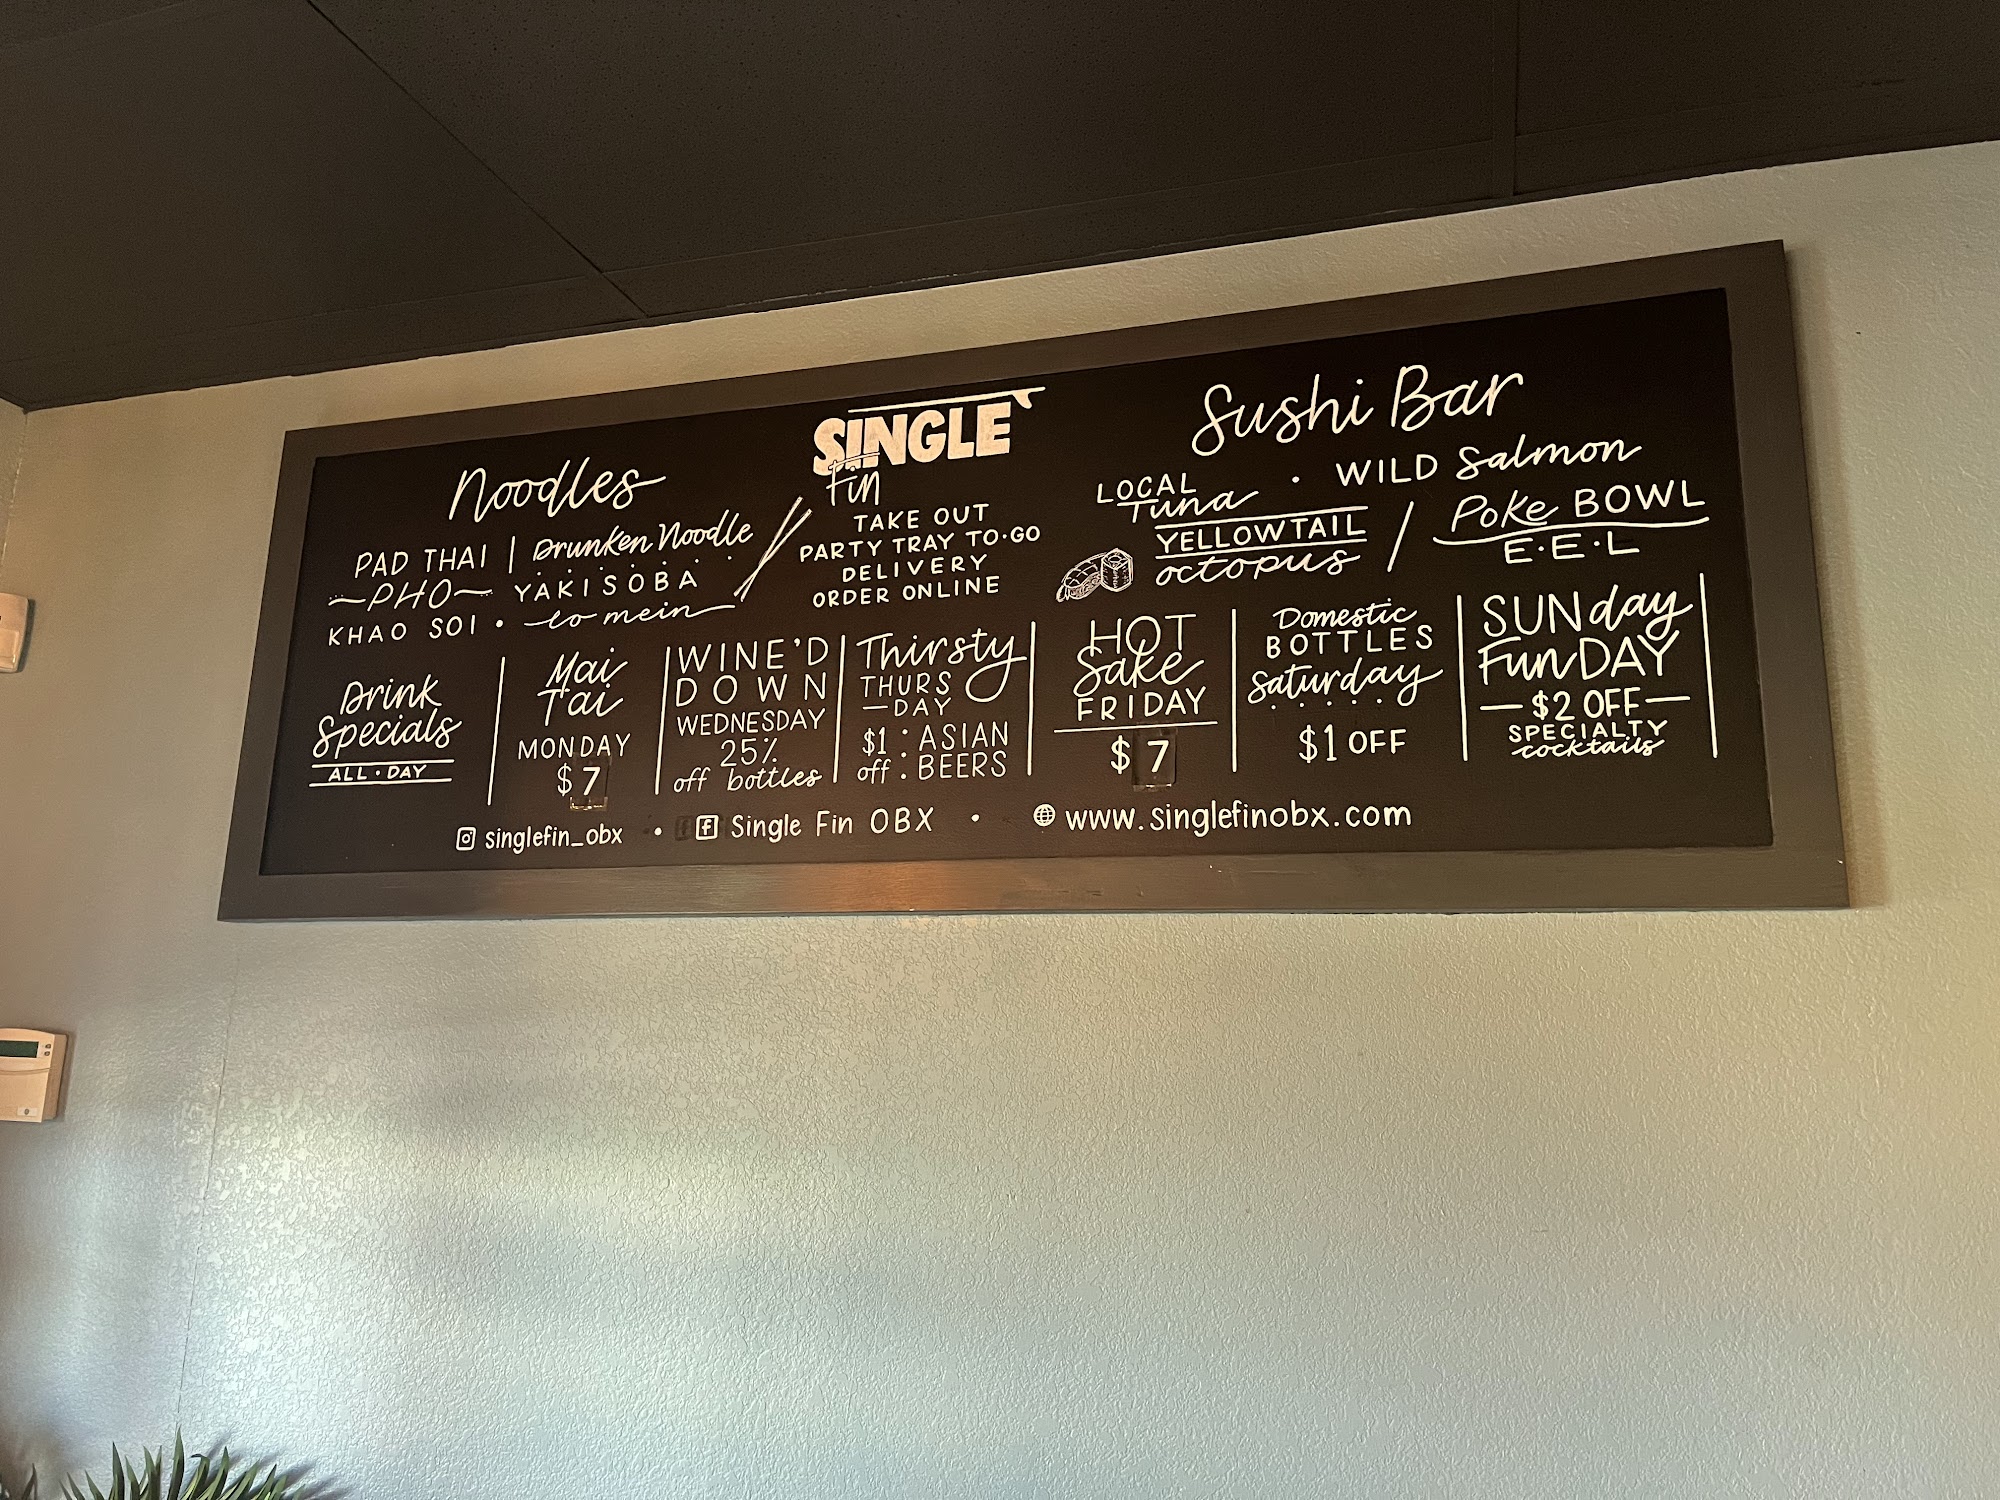 Noodles
PAD THAI | Drunken Noodle
~PHO~ YAKISOBA
KHAO SOI • lo mein
SINGLE
Fin
TAKE OUT
PARTY TRAY TO•GO
DELIVERY
ORDER ONLINE
Sushi Bar
LOCAL Tuna • WILD Salmon
YELLOWTAIL / Poke BOWL
octopus E•E•L
Drink
Specials
ALL•DAY
Mai
Tai
MONDAY
$7
WINE'D
DOWN
WEDNESDAY
25%
off bottles
Thirsty
THURS
—DAY
$1 : ASIAN
off : BEERS
HOT
Sake
FRIDAY
$7
Domestic
BOTTLES
Saturday
$1 OFF
SUNday
FunDAY
—$2 OFF—
SPECIALTY
cocktails
singlefin_obx • Single Fin OBX • www.singlefinobx.com